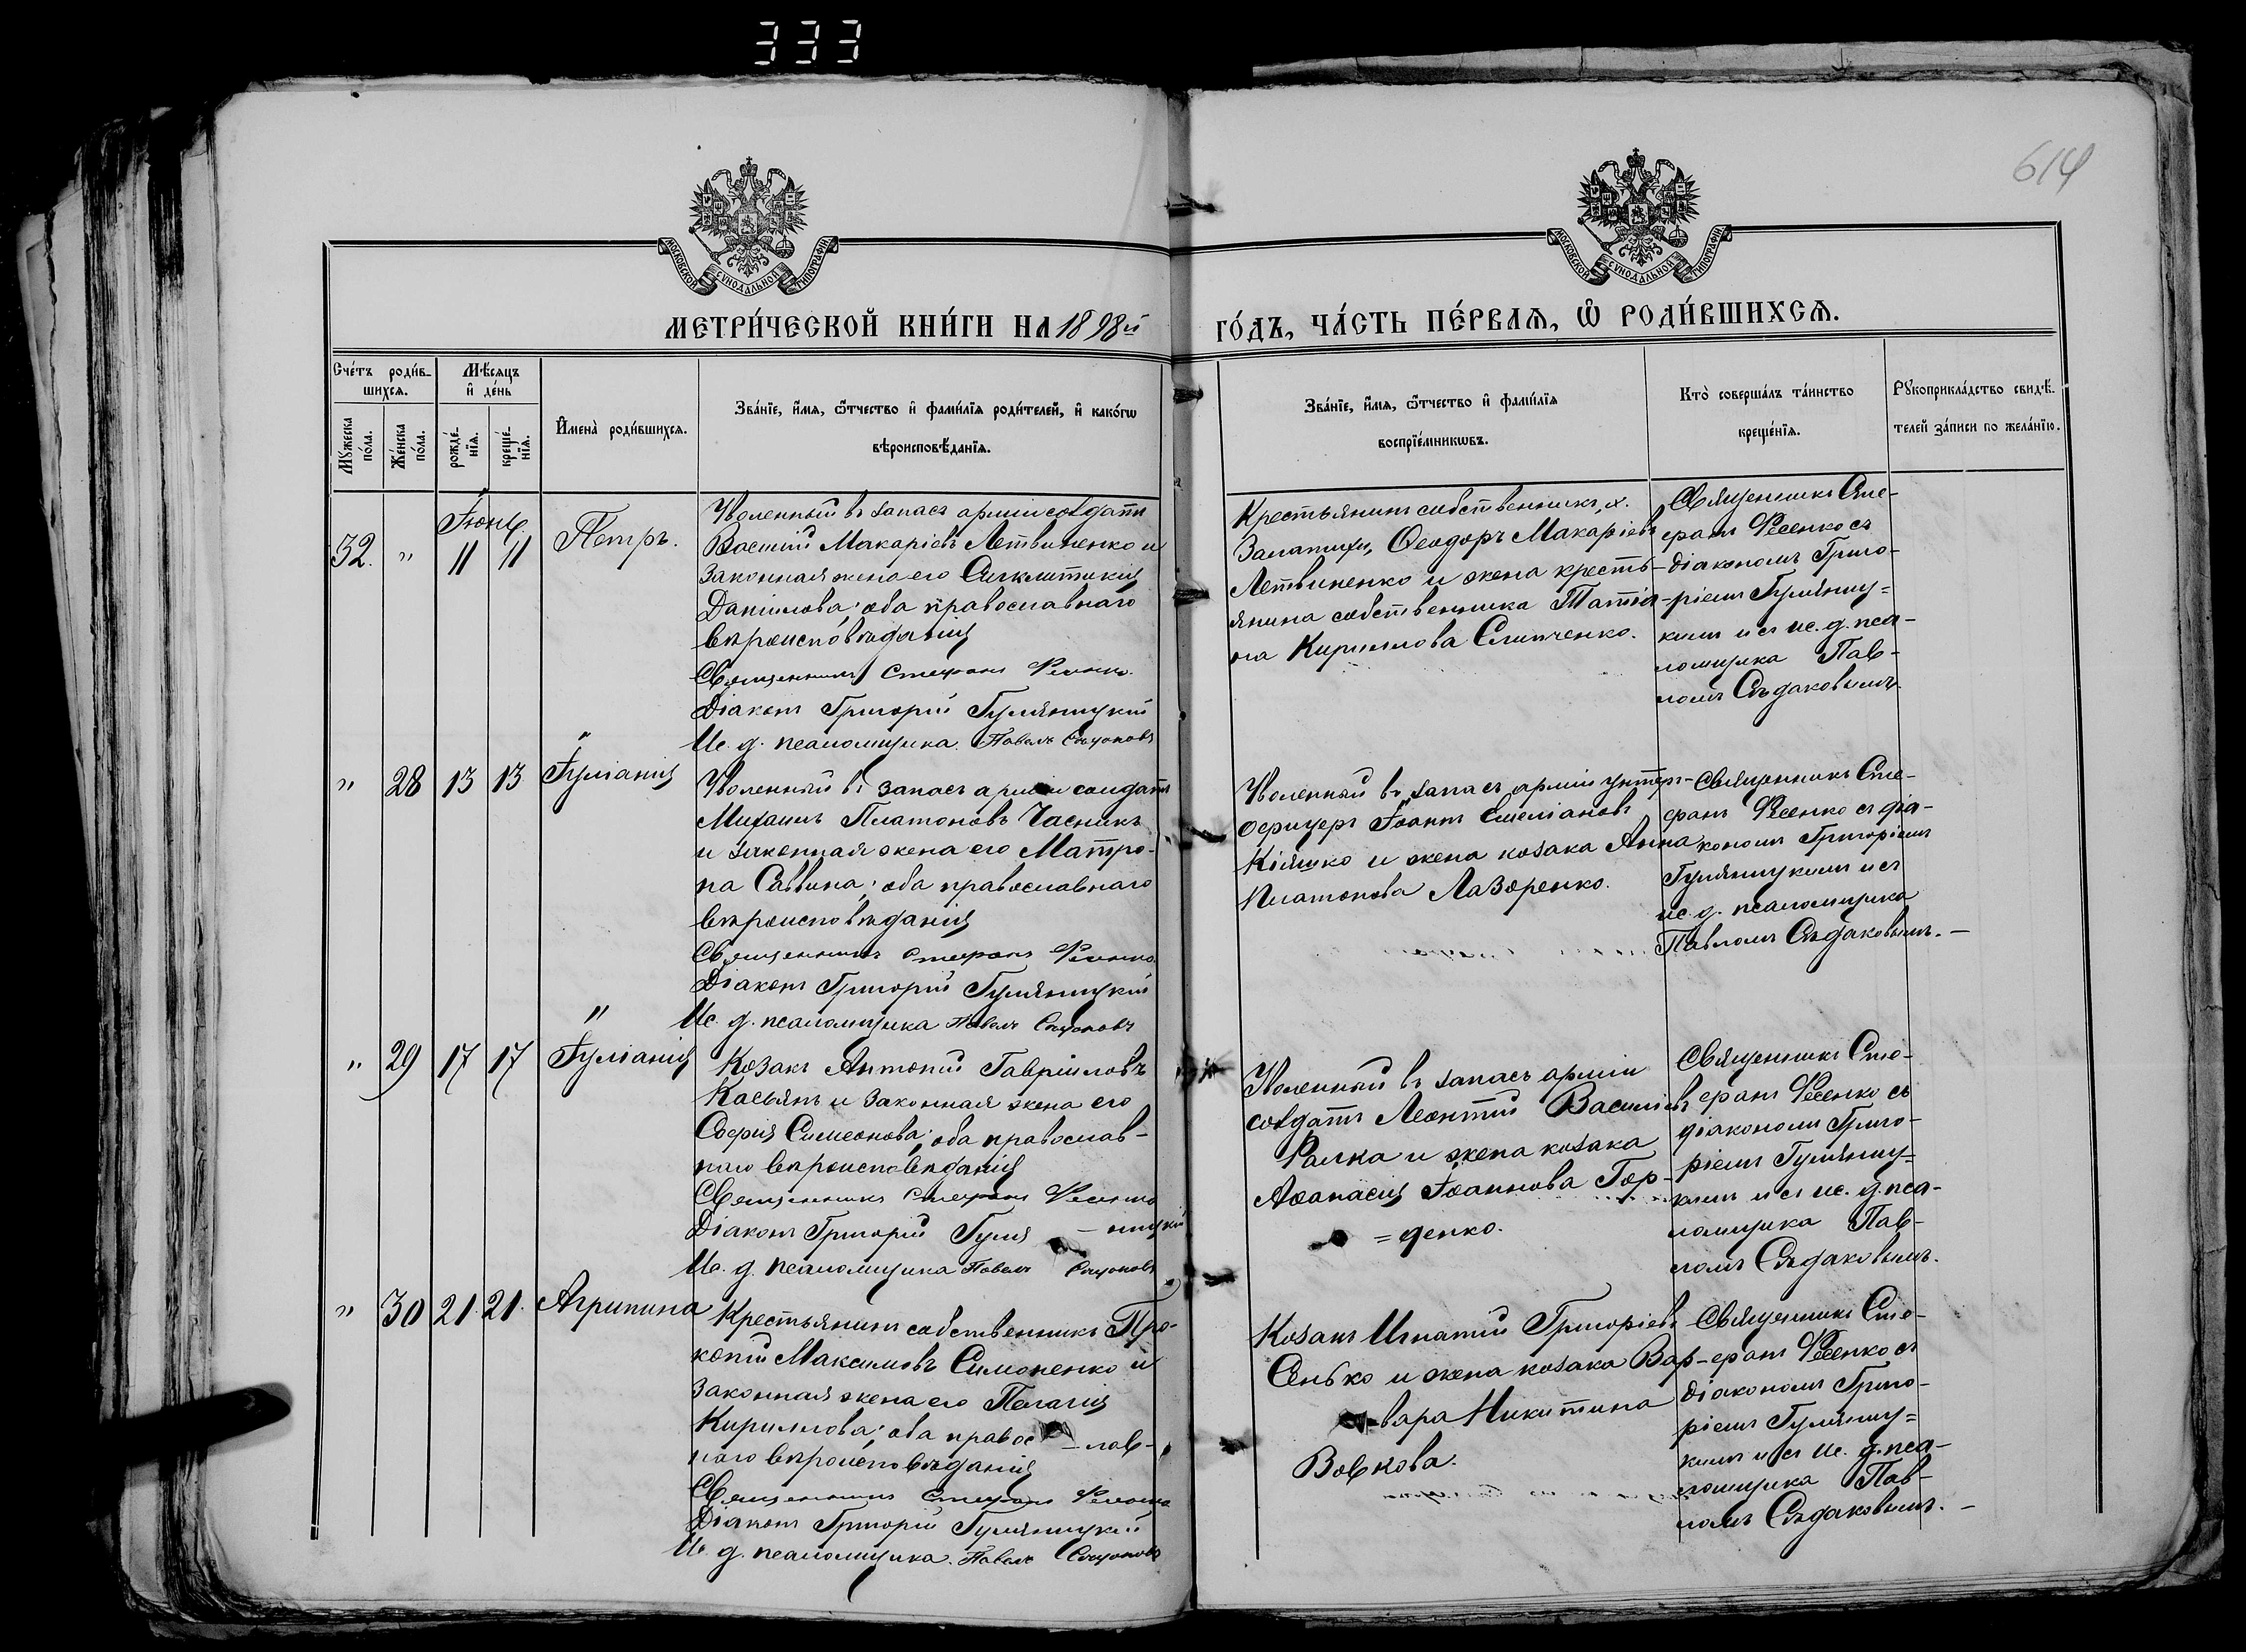 333
614
МОСКОВСКОЙ СѴНОДАЛЬНОЙ ТИПОГРАФІИ
МОСКОВСКОЙ СѴНОДАЛЬНОЙ ТИПОГРАФІИ
МЕТРИ́ЧЕСКОЙ КНИ́ГИ НА 1898й
ГО́ДЪ, ЧА́СТЬ ПЕ́РВАѦ, Ѡ҆ РОДИ́ВШИХСѦ.
Сче́тъ роди́в-
шихсѧ.
Мꙋжеска по́ла.
Же́нска по́ла.
Мѣ́сѧцъ
и҆ де́нь
рожде́-
нїѧ.
креще́-
нїѧ.
И҆мена̀ роди́вшихсѧ.
Зва́нїе, и҆́мѧ, ѻ҆́тчество и҆ фами́лїѧ роди́телей, и҆ како́гѡ
вѣроисповѣ́данїѧ.
Зва́нїе, и҆́мѧ, ѻ҆́тчество и҆ фами́лїѧ
воспрїе́мникѡвъ.
Кто̀ соверша́лъ та́инство
креще́нїѧ.
Рꙋкоприкла́дство свидѣ́-
телей за́писи по жела́нїю.
Іюнь
32. " 11 11 Петръ.
Уволенный въ запасъ арміи солдатъ
Василій Макаріевъ Летвиненко и
законная жена его Синклитикія
Даніилова; оба православнаго
вѣроисповѣданія
Священникъ Стефанъ Фесенко
Діаконъ Григорій Гуляницкій
Ис. д. псаломщика Павелъ Сѣдаковъ
Крестьянинъ собственникъ, х.
Залатихи, Ѳеодоръ Макаріевъ
Летвиненко и жена кресть-
янина собственника Татіа-
на Кириллова Слипченко.
Священникъ Сте-
фанъ Фесенко съ
діакономъ Григо-
ріемъ Гуляниц=
кимъ и съ ис. д. пса-
ломщика Пав-
ломъ Сѣдаковымъ.
" 28 13 13 Іуліанія
Уволенный въ запасъ арміи солдатъ
Михаилъ Платоновъ Часникъ
и законная жена его Матро-
на Саввина; оба православнаго
вѣроисповѣданія
Священникъ Стефанъ Фесенко
Діаконъ Григорій Гуляницкій
Ис. д. псаломщика Павелъ Сѣдаковъ
Уволенный въ запасъ арміи унтеръ-
офицеръ Іоаннъ Емеліановъ
Кіяшко и жена козака Анна
Платонова Лазоренко.
Священникъ Сте-
фанъ Фесенко съ діа-
кономъ Григоріемъ
Гуляницкимъ и съ
ис. д. псаломщика
Павломъ Сѣдаковымъ. —
" 29 17 17 Іуліанія
Козакъ Антоній Гавріиловъ
Касьянъ и законная жена его
Софія Симеонова; оба православ-
наго вѣроисповѣданія
Священникъ Стефанъ Фесенко
Діаконъ Григорій Гуля — ницкій
Ис. д. псаломщика Павелъ Сѣдаковъ
Уволенный въ запасъ арміи
солдатъ Леонтій Василіевъ
Ралка и жена козака
Аѳанасія Іоаннова Гор-
=денко.
Священникъ Сте-
фанъ Фесенко съ
діакономъ Григо-
ріемъ Гуляниц=
кимъ и съ ис. д. пса-
ломщика Пав-
ломъ Сѣдаковымъ.
" 30 21. 21. Агрипина
Крестьянинъ собственникъ Про-
копій Максимовъ Симоненко и
законная жена его Пелагія
Кириллова; оба правос — лав-
наго вѣроисповѣданія
Священникъ Стефанъ Фесенко
Діаконъ Григорій Гуляницкій
Ис. д. псаломщика. Павелъ Сѣдаковъ
Козакъ Игнатій Григоріевъ
Сенько и жена козака Вар-
вара Никитина
Вовкова.
Священникъ Сте-
фанъ Фесенко съ
діакономъ Григо-
ріемъ Гуляниц=
кимъ и съ ис. д. пса-
ломщика Пав-
ломъ Сѣдаковымъ. —